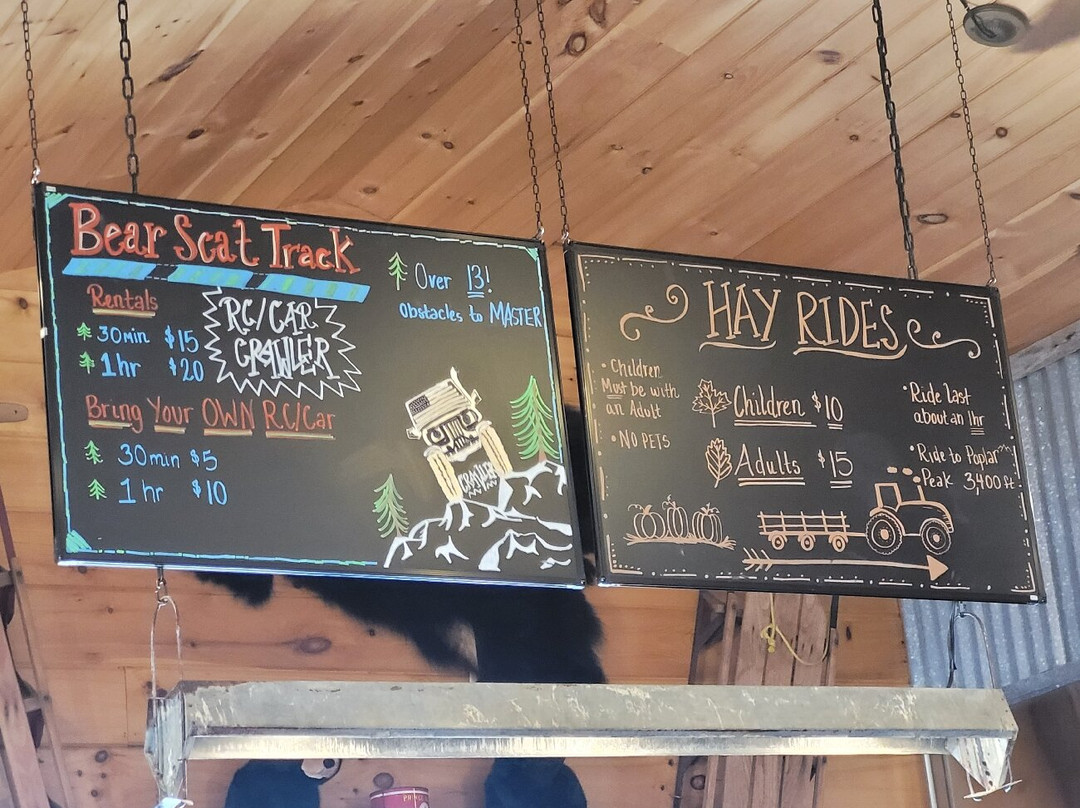 Bear Scat Track
Rentals
30min $15
1hr $20
RC/CAR
CRAWLER
Bring Your OWN R.C/Car
30min $5
1hr $10
Over 13!
Obstacles to MASTER
CRAWLER
HAY RIDES
• Children
Must be with
an Adult
• NO PETS
Children $10
Adults $15
• Ride last
about an 1hr
• Ride to Poplar
Peak 3,400 ft